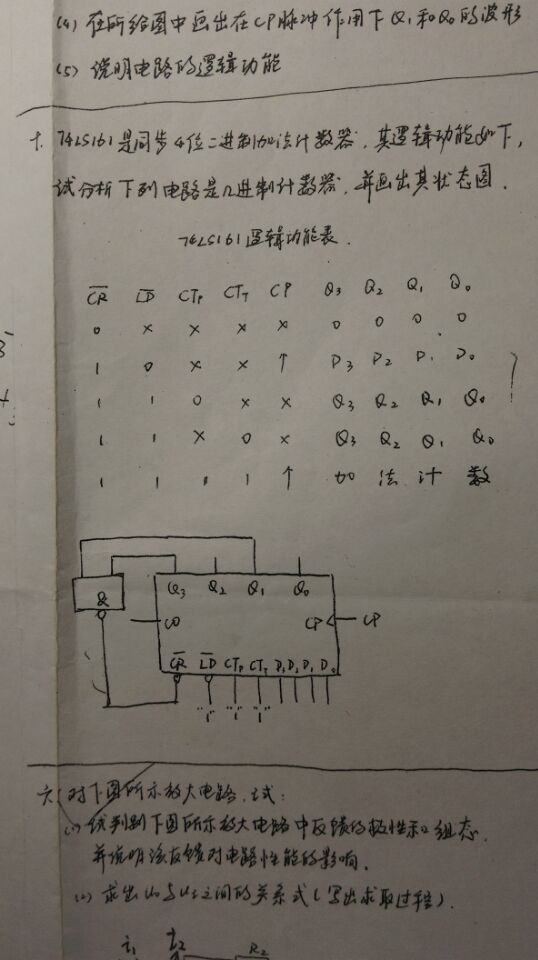 (4) 在所给图中画出在CP脉冲作用下Q₁和Q₀的波形
(5) 说明电路的逻辑功能
十. 74LS161是同步4位二进制加法计数器, 其逻辑功能如下,
试分析下列电路是几进制计数器, 并画出其状态图.
74LS161逻辑功能表.
C̅R̅ L̅D̅ CTP CTT CP Q₃ Q₂ Q₁ Q₀
0 × × × × 0 0 0 0
1 0 × × ↑ D₃ D₂ D₁ D₀
1 1 0 × × Q₃ Q₂ Q₁ Q₀
1 1 × 0 × Q₃ Q₂ Q₁ Q₀
1 1 1 1 ↑ 加 法 计 数
&
Q₃ Q₂ Q₁ Q₀
CO
CP
CP
C̅R̅ L̅D̅ CTP CTT D₃ D₂ D₁ D₀
"1" "1" "1"
六、对下图所示放大电路, 试:
(1) 试判别下图所示放大电路中反馈的极性和组态.
并说明该反馈对电路性能的影响.
(2) 求出U₀与US之间的关系式(写出求取过程).
R₂